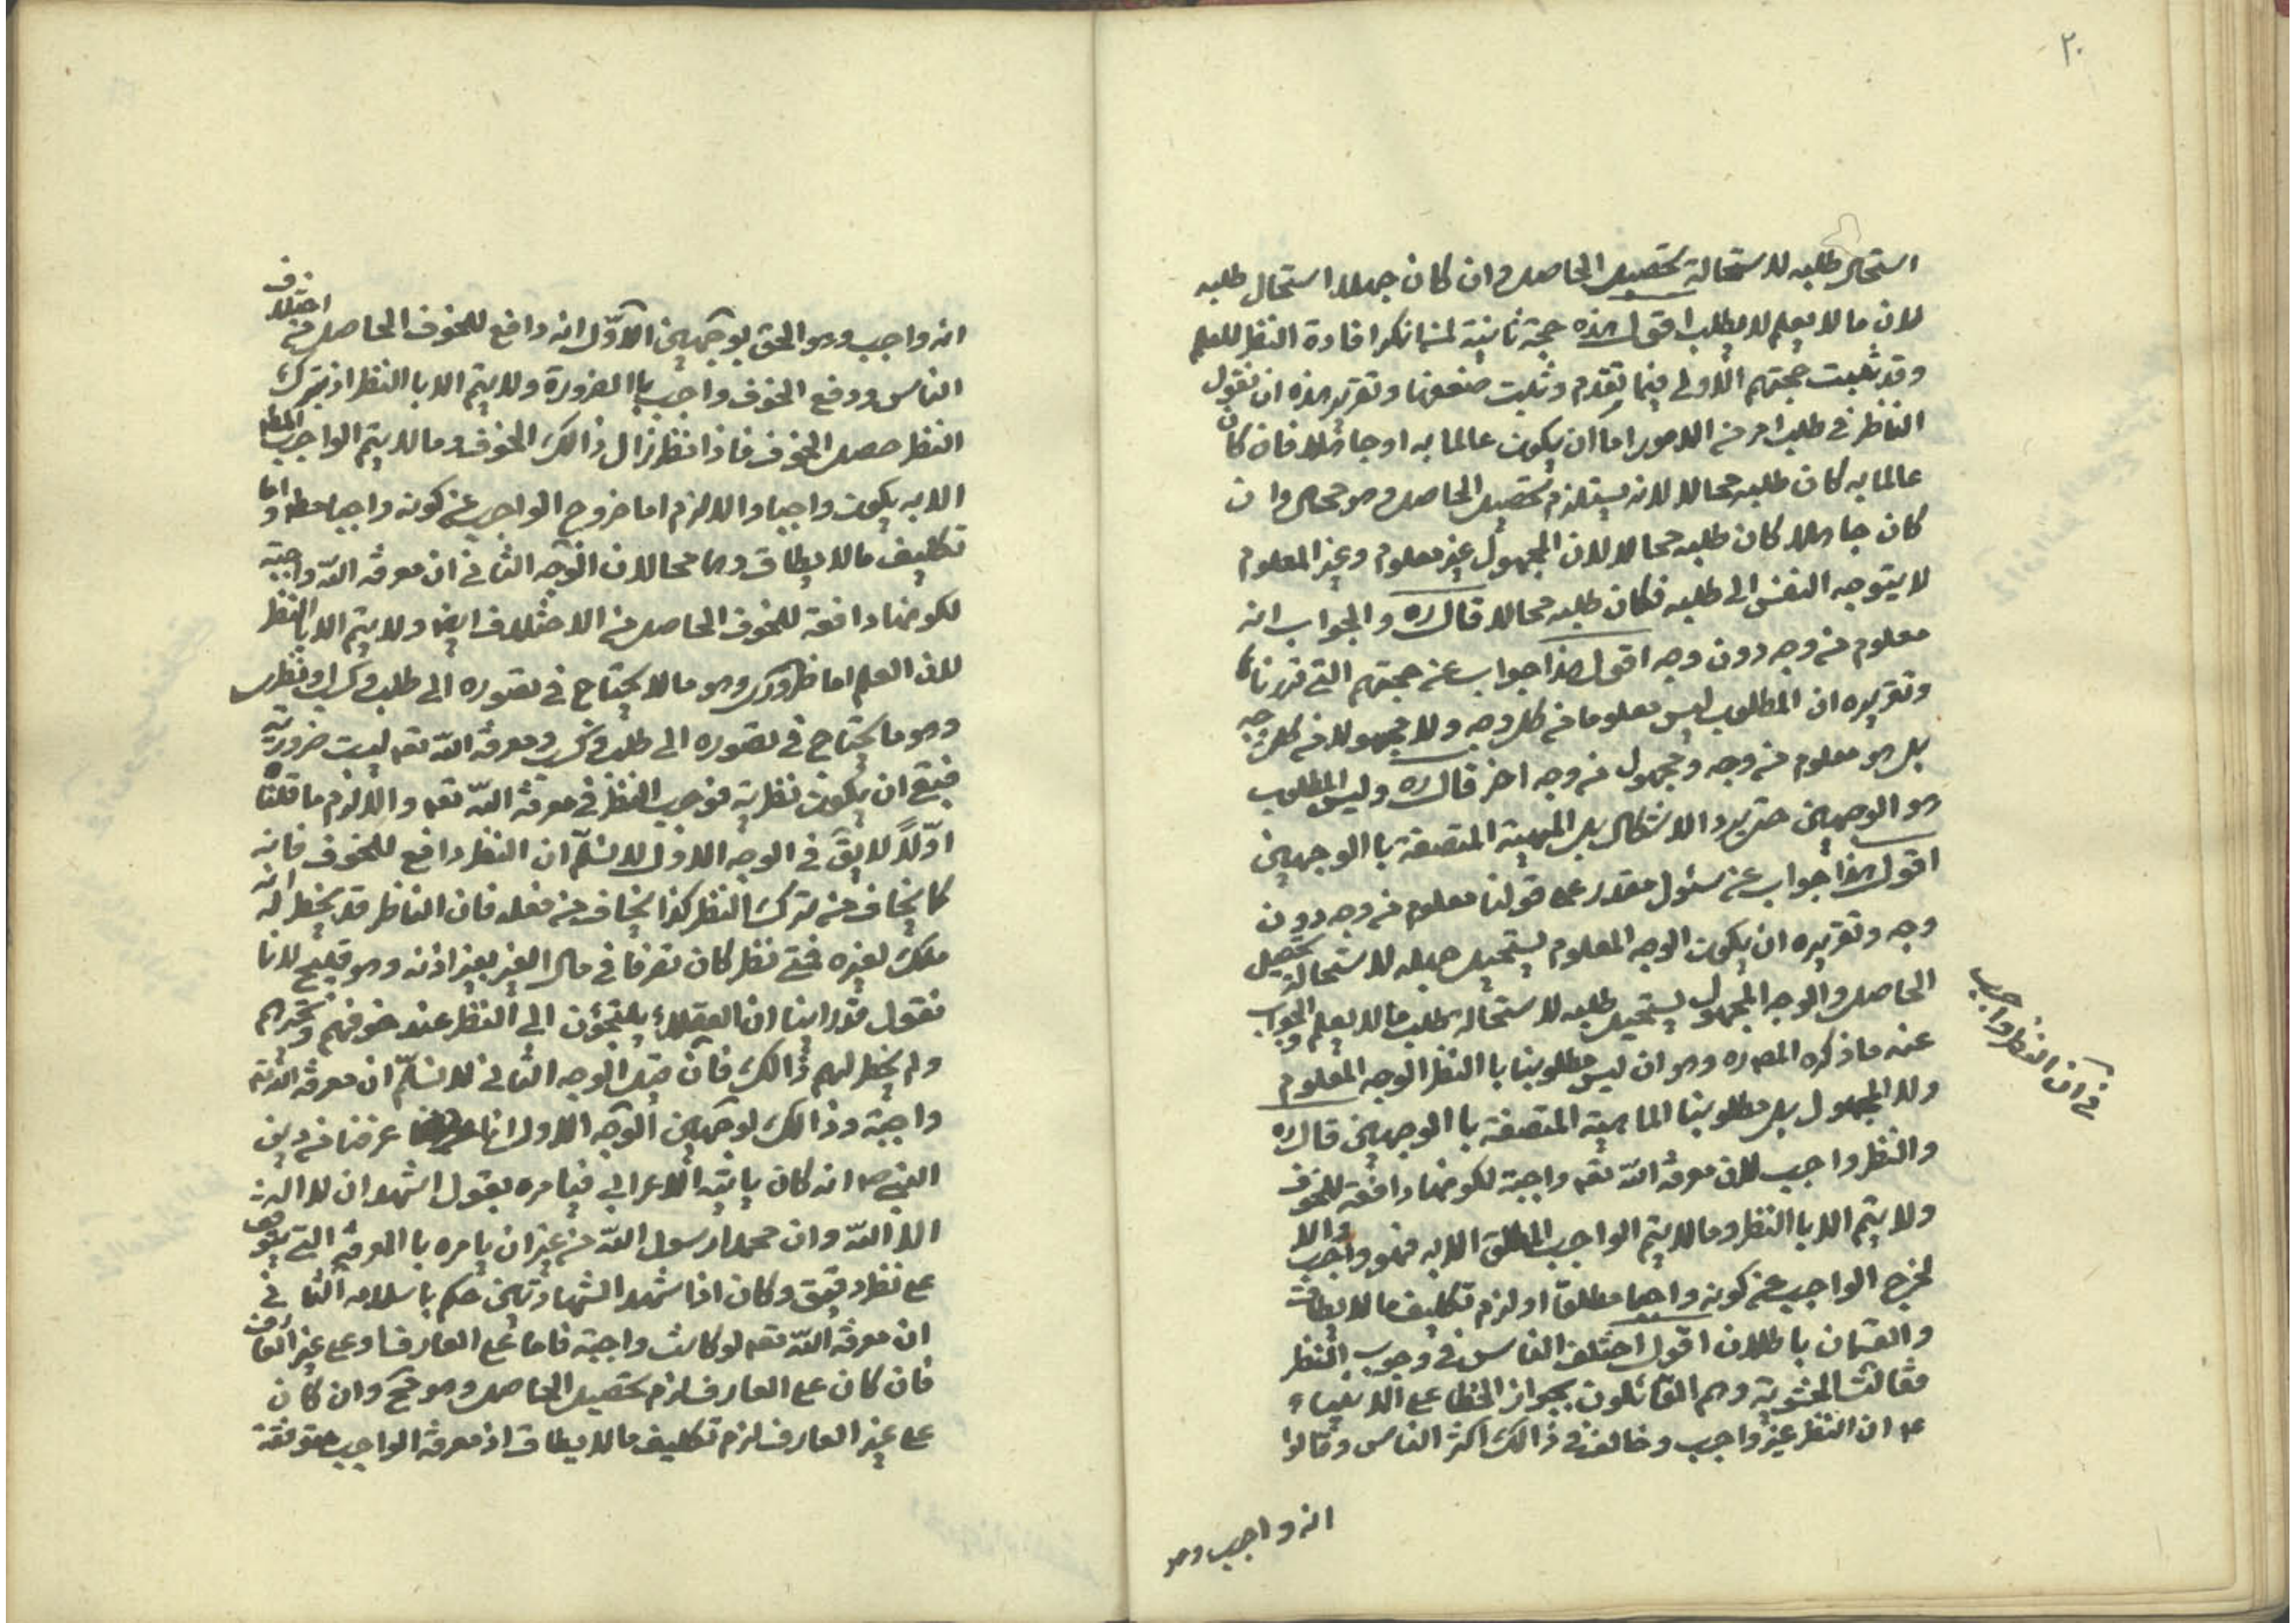 ٢٠
استحال طلبه لاستحالة تحصيل الحاصل وان كان جهلا استحال طلبه
لان ما لا يعلم لا يطلب اقول هذه حجة ثانية لمن انكر افادة النظر للعلم
وقد حجتهم الاولى فيما تقدم وثبت ضعفها وتقرير هذه ان نقول
الناظر في طلب امر من الامور اما ان يكون عالما به او جاهلا فان كان
عالما به كان طلبه محالا لانه يستلزم تحصيل الحاصل وهو محال وان
كان جاهلا كان طلبه محالا لان المجهول غير معلوم وغير المعلوم
لا يتوجه النفس الى طلبه فكان طلبه محالا قال ره والجواب انه
معلوم من وجه دون وجه اقول هذا جواب عن حجتهم التى قررناها
وتقريره ان المطلوب ليس معلوما من كل وجه ولا مجهولا من كل وجه
بل هو معلوم من وجه ومجهول من وجه اخر قال ره وليس المطلوب
هو الوجهين حتى يرد الاشكال بل المهية المتصفة باالوجهين
اقول هذا جواب عن سئول مقدر على قولنا معلوم من وجه دون
وجه وتقريره ان يكون الوجه المعلوم يستحيل لاستحالة تحصيل
الحاصل والوجه المجهول يستحيل طلبه لاستحالة طلب ما لا يعلم والجواب
عنه ما ذكره المص ره وهو ان ليس مطلوبنا باالنظر الوجه المعلوم
ولا المجهول بل مطلوبنا الماهية المتصفة باالوجهين قال ره
والنظر واجب لان معرفة الله تعه واجبة لكونها دافعة للخوف
ولا يتم الا باالنظر وما لا يتم الواجب المطلق الا به فهو واجب والا
لخرج الواجب عن كونه واجبا مطلقا او لزم تكليف ما لا يطاق
والقسمان باطلان اقول اختلف الناس في وجوب النظر
فقالت الحشوية وهم القائلون بجواز الخطا على الانبياء
عه ان النظر غير واجب وخالف في ذالك اكثر الناس وقالوا
انه واجب وهو
في ان النظر واجب
انه واجب وهو الحق بوجهين الاوّل انه دافع للخوف الحاصل من اختلاف
الناس ودفع الخوف واجب باالضرورة ولا يتم الا باالنظر اذ بترك
النظر حصل الخوف فاذا نظر زال ذالك الخوف وما لا يتم الواجب المطه
الا به يكون واجبا والا لزم اما خروج الواجب عن كونه واجبا مطه واما
تكليف ما لا يطاق وهما محالان الوجه الثانى ان معرفة الله واجبة
لكونها دافعة للخوف الحاصل من الاختلاف ايضا ولا يتم الا باالنظر
لان العلم اما ضرورى وهو ما لا يحتاج في تصوره الى طلب وكسب او نظرى
وهو ما يحتاج في تصوره الى طلب وكسب ومعرفة الله تعه ليست ضرورية
فبقى ان يكون نظرية فوجب النظر في معرفة الله تعه والا لزم ما قلناه
اوّلاً لا يق في الوجه الاول لا نسلّم ان النظر دافع للخوف فانه
كما يخاف من ترك النظر كذا يخاف من فعله فان الناظر قد يخطر له انه
ملك لغيره فمتى نظر كان تصرفا في مال الغير بغير اذنه وهو قبيح لانا
نقول قد راينا ان العقلاء يلتجؤن الى النظر عند خوفهم وتحيرهم
ولم يخطر لهم ذالك فان قيل الوجه الثانى لا نسلّم ان معرفة الله تعه
واجبة وذالك لوجهين الوجه الاول انا عرفنا من دين
النبى ص انه كان ياتيه الاعرابى فيامره بقول اشهد ان لا اله
الا الله وان محمدا رسول الله من غير ان يامره باالمعرفة التى يتوقف
على نظر دقيق وكان اذا شهد الشهادتين حكم باسلامه الثانى
ان معرفة الله تعه لو كانت واجبة فاما على العارف او على غير العارف
فان كان على العارف لزم تحصيل الحاصل وهو مح وان كان
على غير العارف لزم تكليف ما لا يطاق اذ معرفة الواجب متوقفة